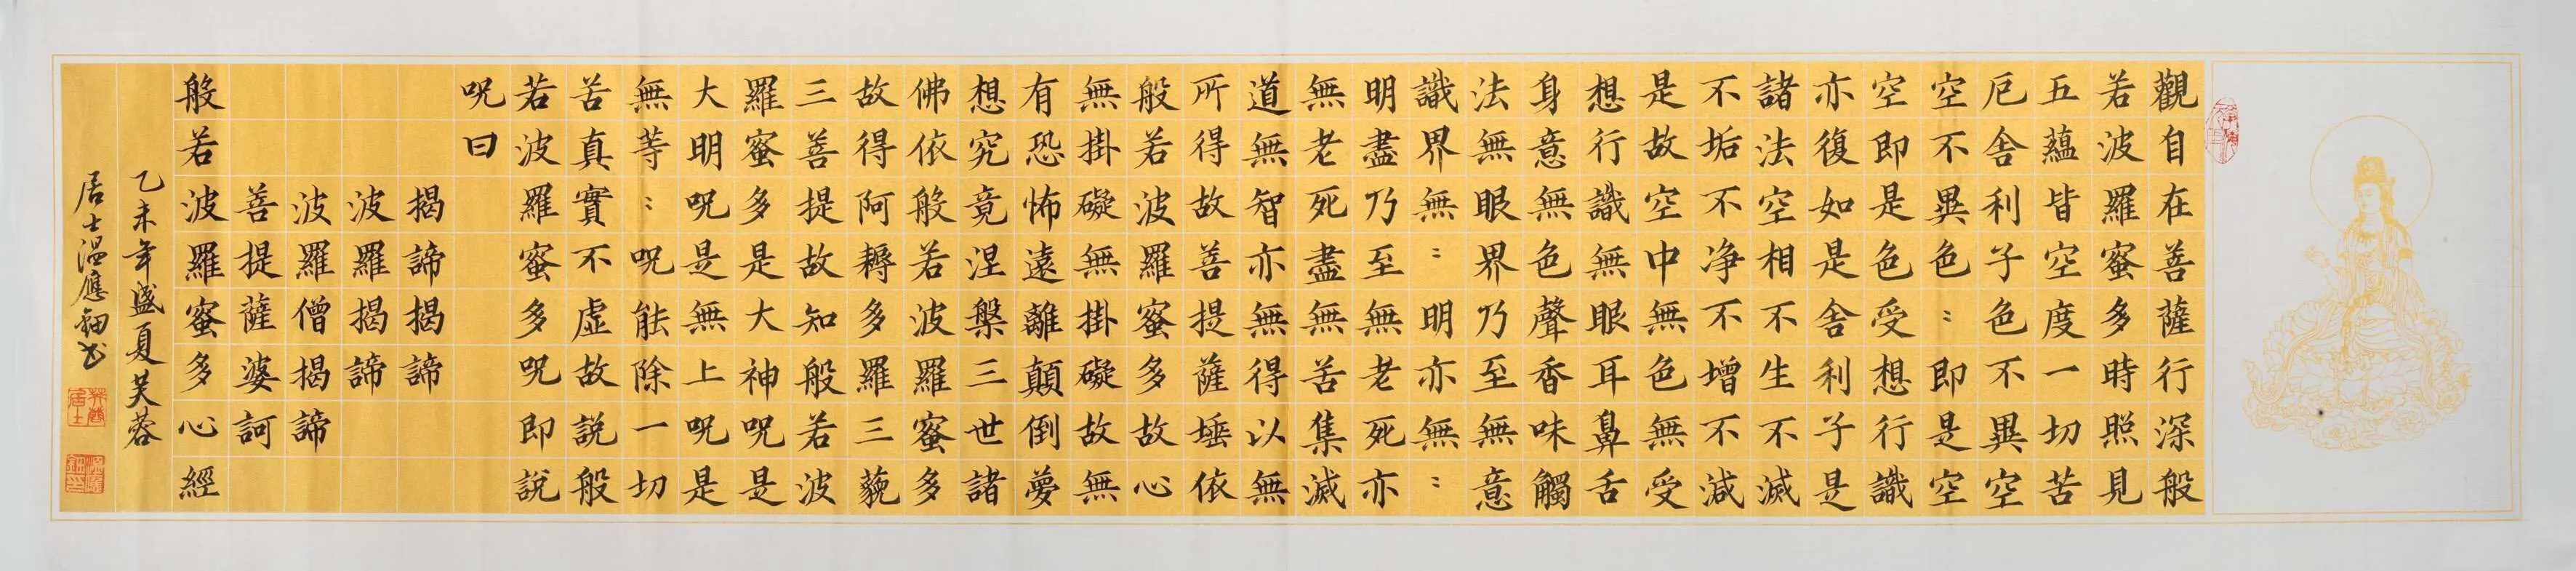 觀自在菩薩行深般
若波羅蜜多時照見
五蘊皆空度一切苦
厄舍利子色不異空
空不異色:即是空
空即是色受想行識
亦復如是舍利子是
諸法空相不生不滅
不垢不净不增不減
是故空中無色無受
想行識無眼耳鼻舌
身意無色聲香味觸
法無眼界乃至無意
識界無:明亦無:
明盡乃至無老死亦
無老死盡無苦集滅
道無智亦無得以無
所得故菩提薩埵依
般若波羅蜜多故心
無掛礙無掛礙故無
有恐怖遠離顛倒夢
想究竟涅槃三世諸
佛依般若波羅蜜多
故得阿耨多羅三藐
三菩提故知般若波
羅蜜多是大神呪是
大明呪是無上呪是
無等:呪能除一切
苦真實不虛故説般
若波羅蜜多呪即説
呪曰
揭諦揭諦
波羅揭諦
波羅僧揭諦
菩提薩婆訶
般若波羅蜜多心經
乙未年盛夏芙蓉
居士温應鈿书